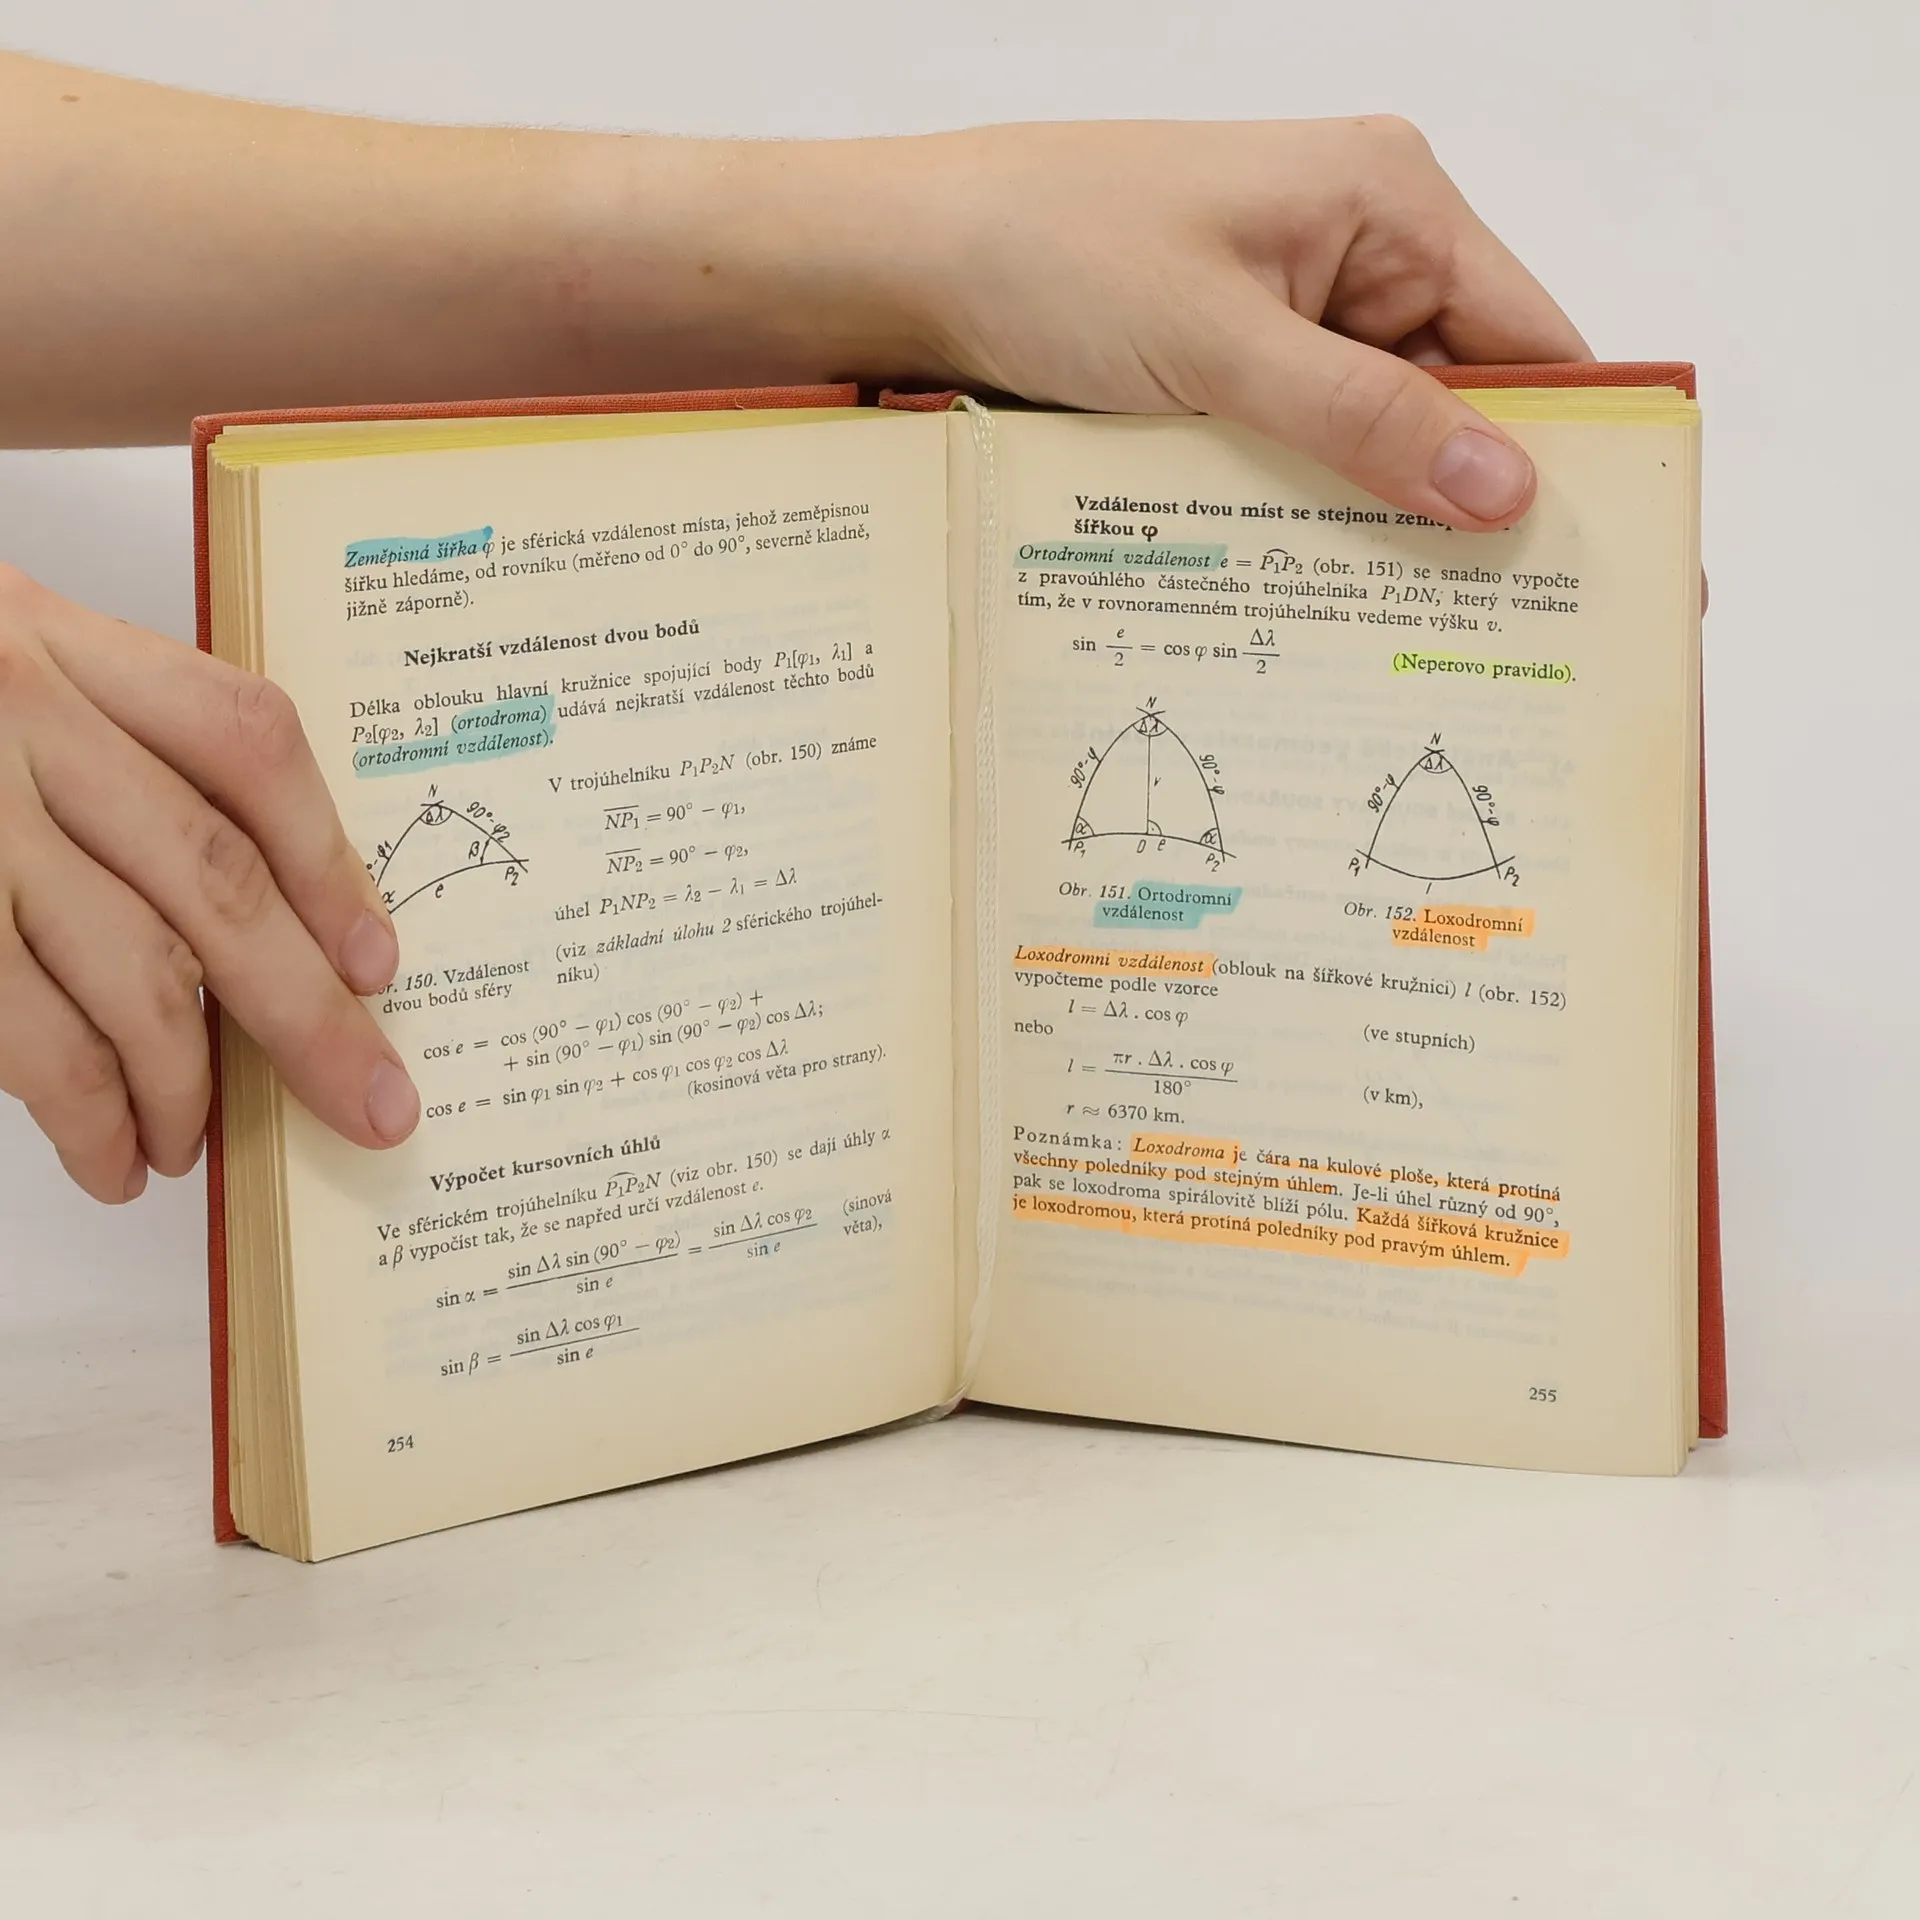 Zeměpisná šířka φ je sférická vzdálenost místa, jehož zeměpisnou
šířku hledáme, od rovníku (měřeno od 0° do 90°, severně kladně,
jižně záporně).
Nejkratší vzdálenost dvou bodů
Délka oblouku hlavní kružnice spojující body P₁[φ₁, λ₁] a
P₂[φ₂, λ₂] (ortodroma) udává nejkratší vzdálenost těchto bodů
(ortodromní vzdálenost).
V trojúhelníku P₁P₂N (obr. 150) známe
NP₁ = 90° − φ₁,
NP₂ = 90° − φ₂,
úhel P₁NP₂ = λ₂ − λ₁ = Δλ
(viz základní úlohu 2 sférického trojúhel-
níku)
N
Δλ
90°-φ₂
°-φ₁
β
α
e
P₂
150. Vzdálenost
dvou bodů sféry
cos e = cos (90° − φ₁) cos (90° − φ₂) +
+ sin (90° − φ₁) sin (90° − φ₂) cos Δλ;
cos e = sin φ₁ sin φ₂ + cos φ₁ cos φ₂ cos Δλ
(kosinová věta pro strany).
Výpočet kursovních úhlů
Ve sférickém trojúhelníku P₁P₂N (viz obr. 150) se dají úhly α
a β vypočíst tak, že se napřed určí vzdálenost e.
sin α = sin Δλ sin (90° − φ₂) / sin e = sin Δλ cos φ₂ / sin e (sinová
věta),
sin β = sin Δλ cos φ₁ / sin e
254
Vzdálenost dvou míst se stejnou
šířkou φ
Ortodromní vzdálenost e = P₁P₂ (obr. 151) se snadno vypočte
z pravoúhlého částečného trojúhelníka P₁DN, který vznikne
tím, že v rovnoramenném trojúhelníku vedeme výšku v.
sin e/2 = cos φ sin Δλ/2 (Neperovo pravidlo).
N
Δλ
90°-φ
90°-φ
v
α
α
P₁
D
e
P₂
Obr. 151. Ortodromní
vzdálenost
N
Δλ
90°-φ
90°-φ
P₁
l
P₂
Obr. 152. Loxodromní
vzdálenost
Loxodromní vzdálenost (oblouk na šířkové kružnici) l (obr. 152)
vypočteme podle vzorce
l = Δλ . cos φ (ve stupních)
nebo
l = πr . Δλ . cos φ / 180° (v km),
r ≈ 6370 km.
Poznámka: Loxodroma je čára na kulové ploše, která protíná
všechny poledníky pod stejným úhlem. Je-li úhel různý od 90°,
pak se loxodroma spirálovitě blíží pólu. Každá šířková kružnice
je loxodromou, která protíná poledníky pod pravým úhlem.
255